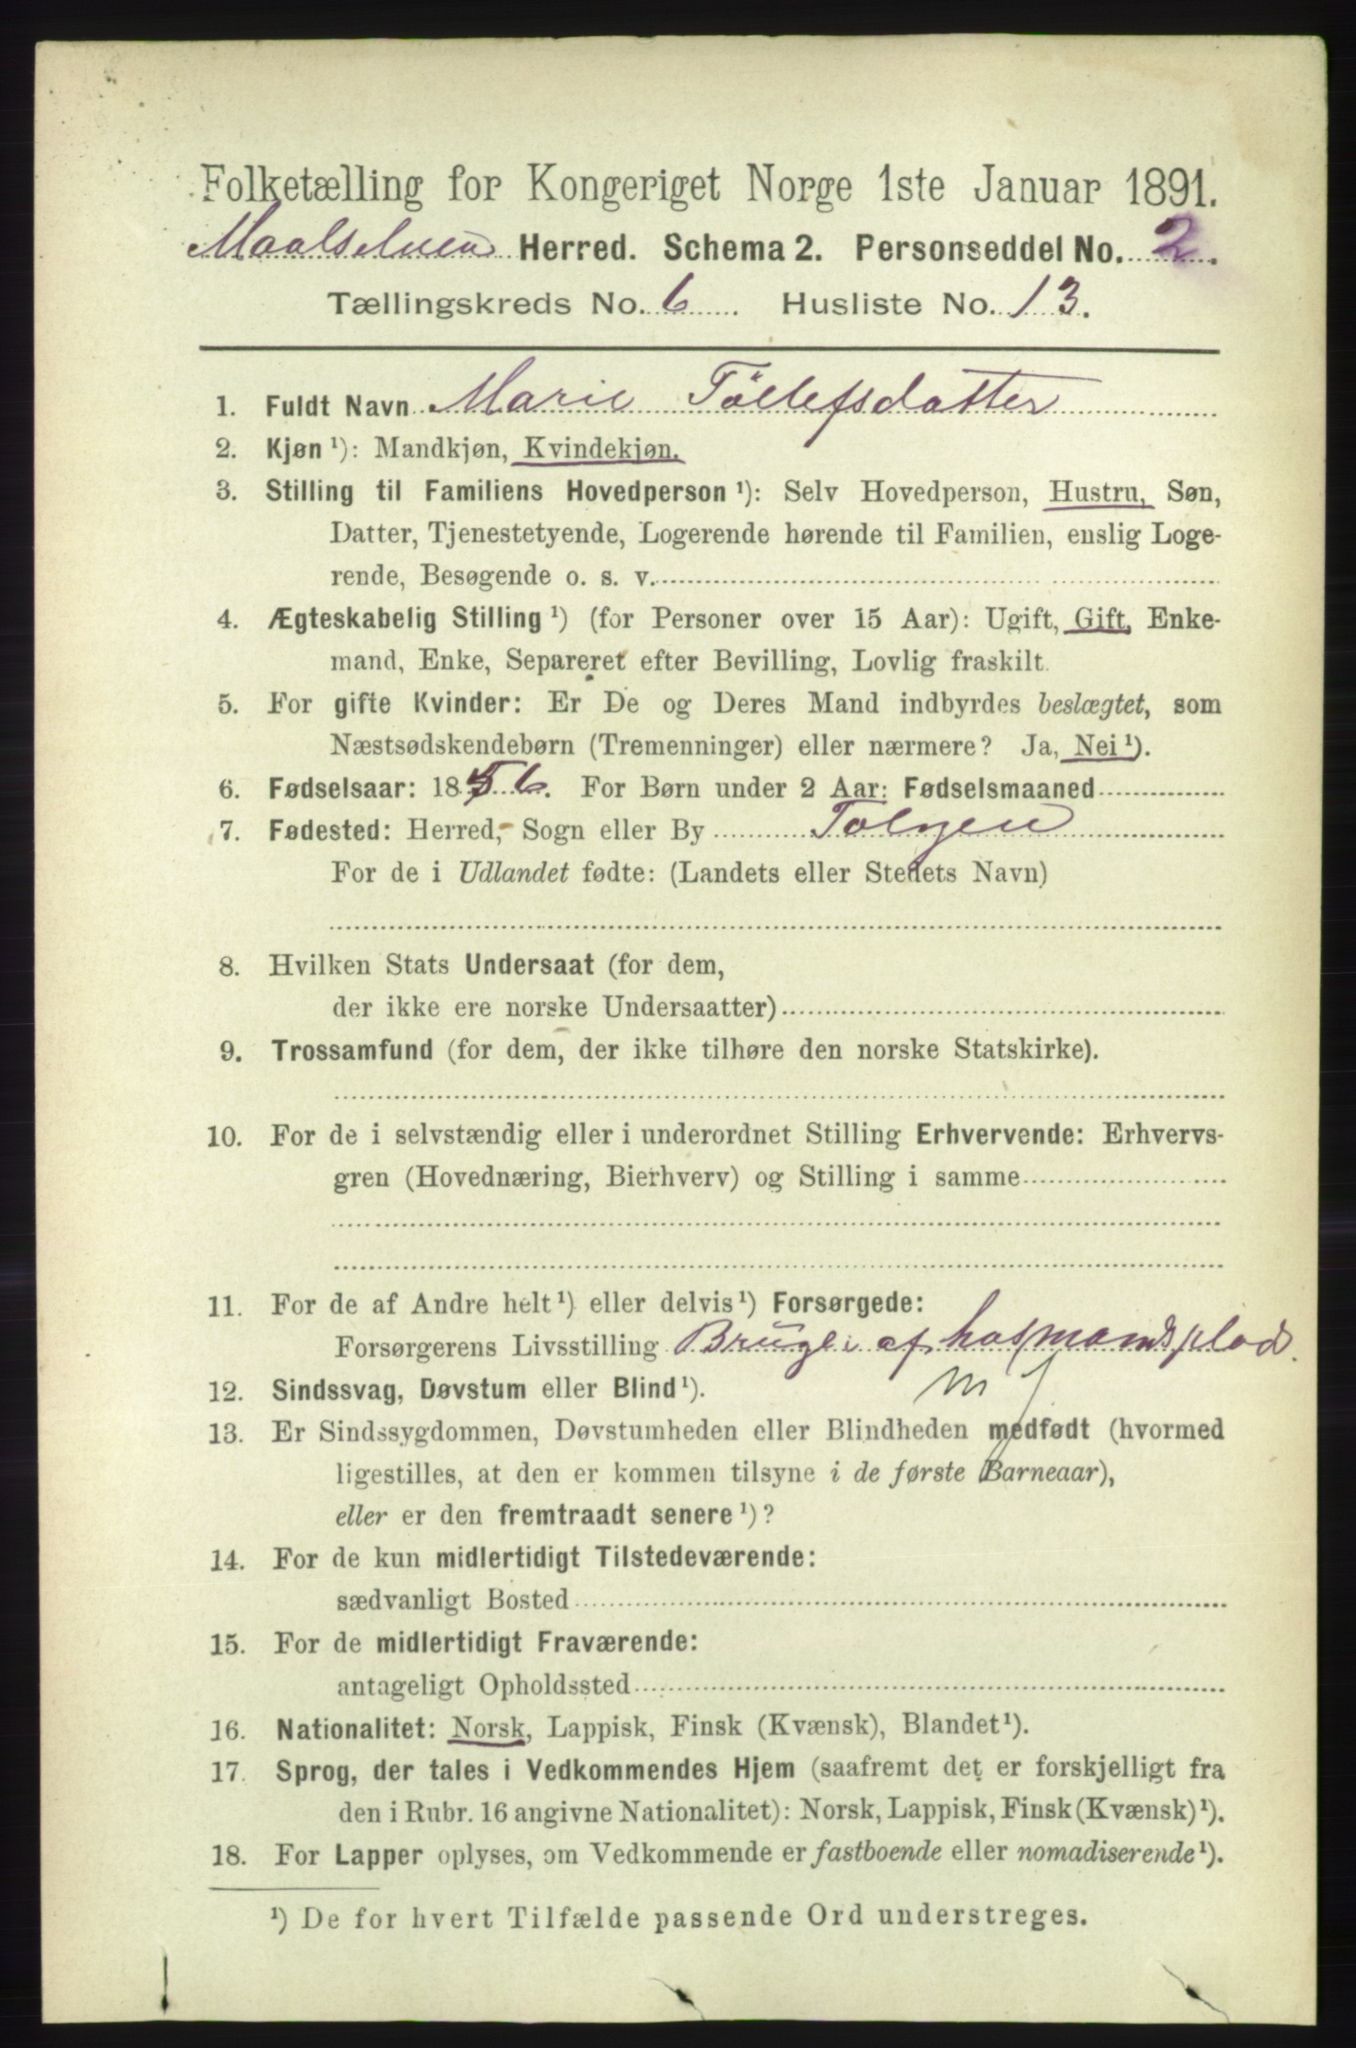 Folketælling for Kongeriget Norge 1ste Januar 1891.
Maalselven Herred. Schema 2. Personseddel No. 2.
Tællingskreds No. 6. Husliste No. 13.
1. Fuldt Navn Marie Tøllefsdatter
2. Kjøn ¹): Mandkjøn, Kvindekjøn.
3. Stilling til Familiens Hovedperson ¹): Selv Hovedperson, Hustru, Søn,
Datter, Tjenestetyende, Logerende hørende til Familien, enslig Loge-
rende, Besøgende o. s. v.
4. Ægteskabelig Stilling ¹) (for Personer over 15 Aar): Ugift, Gift, Enke-
mand, Enke, Separeret efter Bevilling, Lovlig fraskilt.
5. For gifte Kvinder: Er De og Deres Mand indbyrdes beslægtet, som
Næstsødskendebørn (Tremenninger) eller nærmere? Ja, Nei ¹).
6. Fødselsaar: 1856. For Børn under 2 Aar: Fødselsmaaned
7. Fødested: Herred, Sogn eller By Tolgen
For de i Udlandet fødte: (Landets eller Stedets Navn)
8. Hvilken Stats Undersaat (for dem,
der ikke ere norske Undersaatter)
9. Trossamfund (for dem, der ikke tilhøre den norske Statskirke).
10. For de i selvstændig eller i underordnet Stilling Erhvervende: Erhvervs-
gren (Hovednæring, Bierhverv) og Stilling i samme
11. For de af Andre helt ¹) eller delvis ¹) Forsørgede:
Forsørgerens Livsstilling Bruger af husmandsplads.
12. Sindssvag, Døvstum eller Blind ¹). m j
13. Er Sindssygdommen, Døvstumheden eller Blindheden medfødt (hvormed
ligestilles, at den er kommen tilsyne i de første Barneaar),
eller er den fremtraadt senere ¹)?
14. For de kun midlertidigt Tilstedeværende:
sædvanligt Bosted
15. For de midlertidigt Fraværende:
antageligt Opholdssted
16. Nationalitet: Norsk, Lappisk, Finsk (Kvænsk), Blandet ¹).
17. Sprog, der tales i Vedkommendes Hjem (saafremt det er forskjelligt fra
den i Rubr. 16 angivne Nationalitet): Norsk, Lappisk, Finsk (Kvænsk) ¹).
18. For Lapper oplyses, om Vedkommende er fastboende eller nomadiserende ¹).
¹) De for hvert Tilfælde passende Ord understreges.